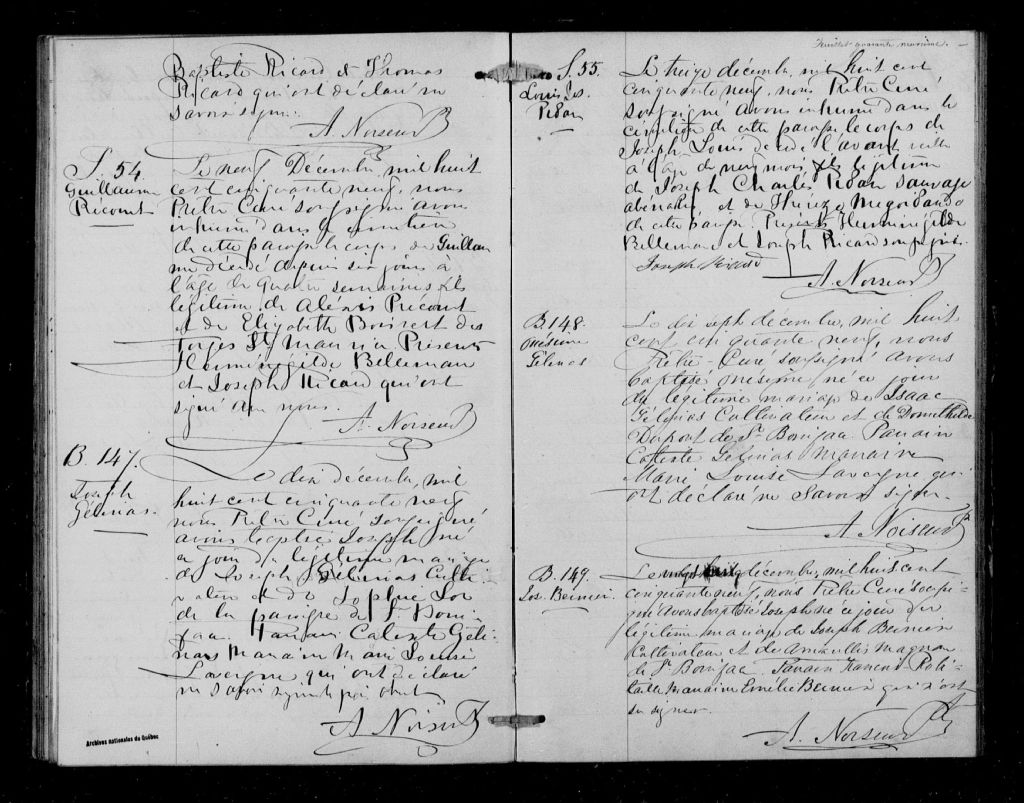 Baptiste Ricard et Thomas
Ricard qui ont déclaré ne
savoir signer.
A. Noiseux Ptr
S. 54.
Guillaume
Récourt
Le neuf Décembre, mil huit
cent cinquante neuf, nous
Prêtre Curé soussigné avons
inhumé dans le cimetière
de cette paroisse le corps de Guillau
me décédé depuis six jours à
l'âge de quatre semaines fils
légitime de Aléxis Récourt
et de Elizabeth Boisvert des
Forges St Maurice Présents
Herménégilde Bellemare
et Joseph Ricard qui ont
signé avec nous.
A. Noiseux Ptr
B. 147.
Joseph
Gélinas.
Le dix décembre, mil
huit cent cinquante neuf
nous Prêtre Curé soussigné
avons baptisé Joseph né
ce jour du légitime mariage
de Joseph Gélinas Culti
vateur et de Sophie
de la paroisse de St Boni
face. Parrain Calixte Géli
nas Marraine Marie Louise
Lavergne qui ont déclaré
ne savoir signer
A. Noiseux Ptr
Archives nationales du Québec
Feuillet quarante neuvième.
S. 55.
Louis Jos.
Le treize décembre, mil huit cent
cinquante neuf, nous Prêtre Curé
soussigné avons inhumé dans le
cimetière de cette paroisse le corps de
Joseph Louis décédé l'avant veille
à l'âge de neuf mois fils légitime
de Joseph Charles sauvage
abénakis et de
de cette paroisse. Présents Herménégilde
Bellemare et Joseph Ricard soussignés.
Joseph Ricard
A. Noiseux Ptr
B. 148.
Onésime
Gélinas
Le dix sept décembre, mil huit
cent cinquante neuf, nous
Prêtre-Curé soussigné avons
baptisé Onésime né ce jour
du légitime mariage de Isaac
Gélinas Cultivateur et de Domithilde
Dupont de St Boniface. Parrain
Calixte Gélinas Marraine
Marie Louise Lavergne qui
ont déclaré ne savoir signer.
A. Noiseux Ptr
B. 149.
Jos. Bernier.
Le décembre, mil huit cent
cinquante neuf, nous Prêtre Curé soussi-
gné avons baptisé Joseph né ce jour du
légitime mariage de Joseph Bernier
Cultivateur et de Amarillis Magnan
de St Boniface. Parrain François Robi-
taille Marraine Emélie Bernier qui n'ont
su signer.
A. Noiseux Ptr